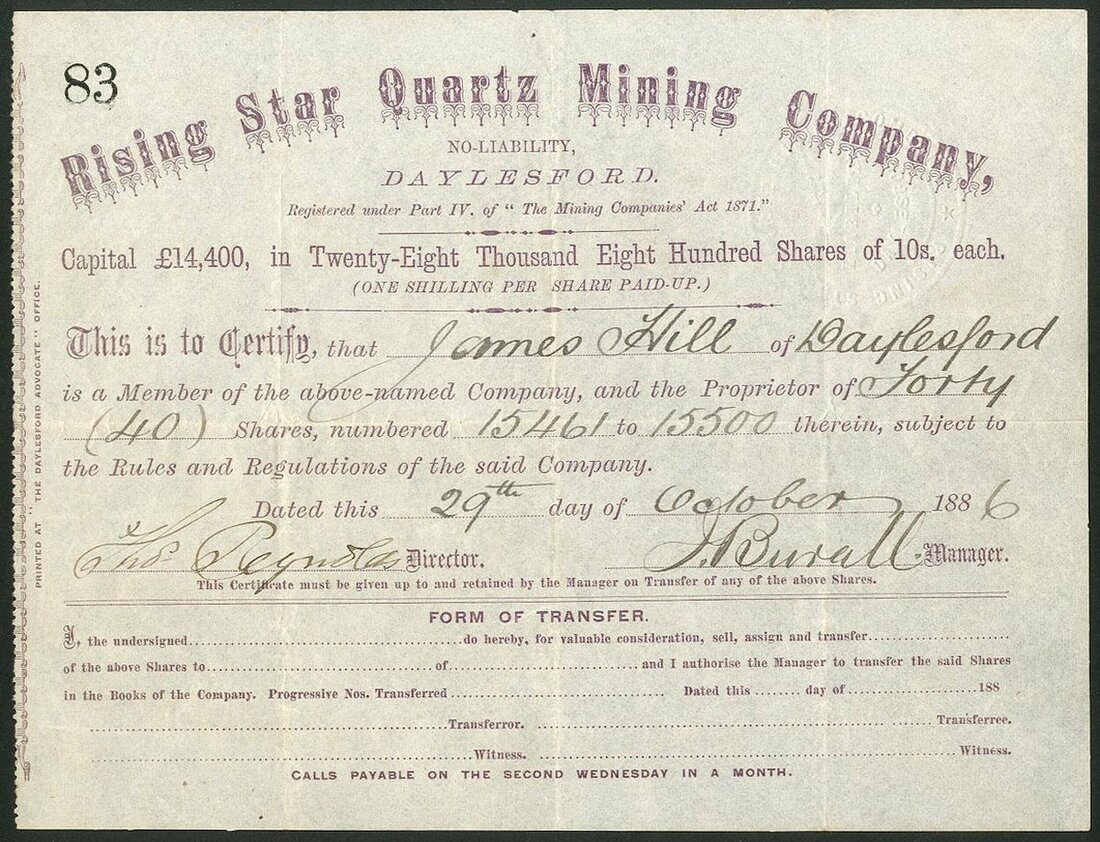 83
Rising Star Quartz Mining Company,
NO-LIABILITY,
DAYLESFORD.
Registered under Part IV. of “ The Mining Companies' Act 1871.”
Capital £14,400, in Twenty-Eight Thousand Eight Hundred Shares of 10s. each.
(ONE SHILLING PER SHARE PAID-UP.)
This is to Certify, that James Hill of Daylesford
is a Member of the above-named Company, and the Proprietor of Forty
(40) Shares, numbered 15461 to 15500 therein, subject to
the Rules and Regulations of the said Company.
Dated this 29th day of October 1886
Thos Reynolds Director. Burall Manager.
This Certificate must be given up to and retained by the Manager on Transfer of any of the above Shares.
FORM OF TRANSFER.
I, the undersigned do hereby, for valuable consideration, sell, assign and transfer
of the above Shares to of and I authorise the Manager to transfer the said Shares
in the Books of the Company. Progressive Nos. Transferred Dated this day of 188
Transferror. Transferree.
Witness. Witness.
CALLS PAYABLE ON THE SECOND WEDNESDAY IN A MONTH.
PRINTED AT “ THE DAYLESFORD ADVOCATE ” OFFICE.